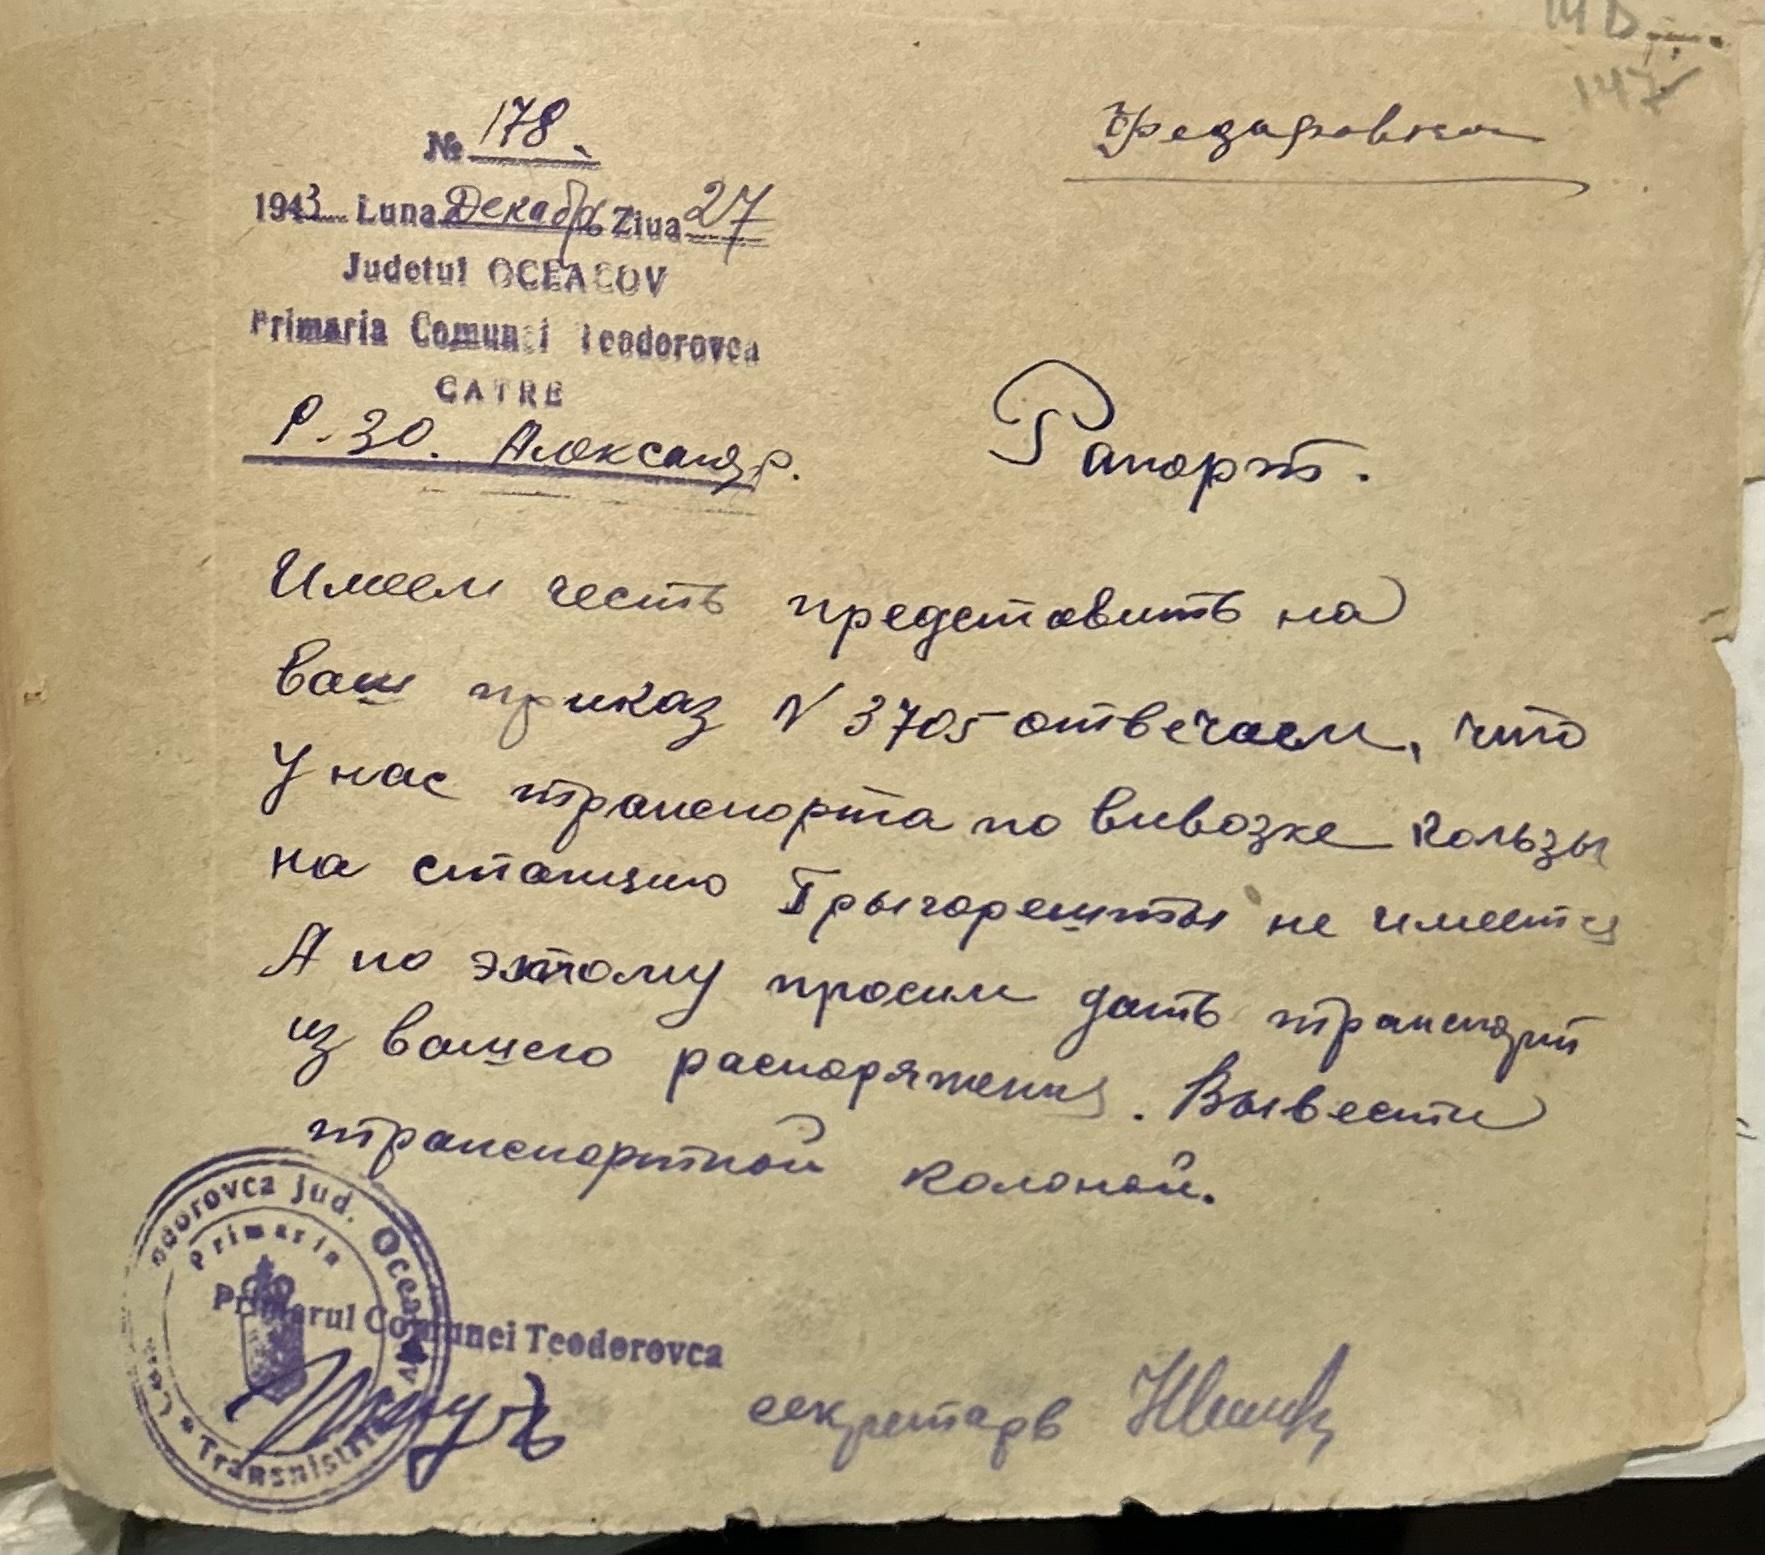 147
Федаровка
№ 178.
1943 Luna Декабрь Ziua 27
Judetul OCEACOV
Primaria Comunei Teodorovca
CATRE
Р. ЗО. Александр.
Рапорт.
Имеем честь предстовить на
ваш приказ N 3705 отвечаем, что
У нас транспорта по вивозке кользы
на станцию Грыгорешты не имеется
А по этому просим дать транспорт
из вашего распоряжения. Вывести
транспортной колоной.
Teodorovca jud. Oceacov
Primaria
Transnistria
Primarul Comunei Teodorovca
секретарь